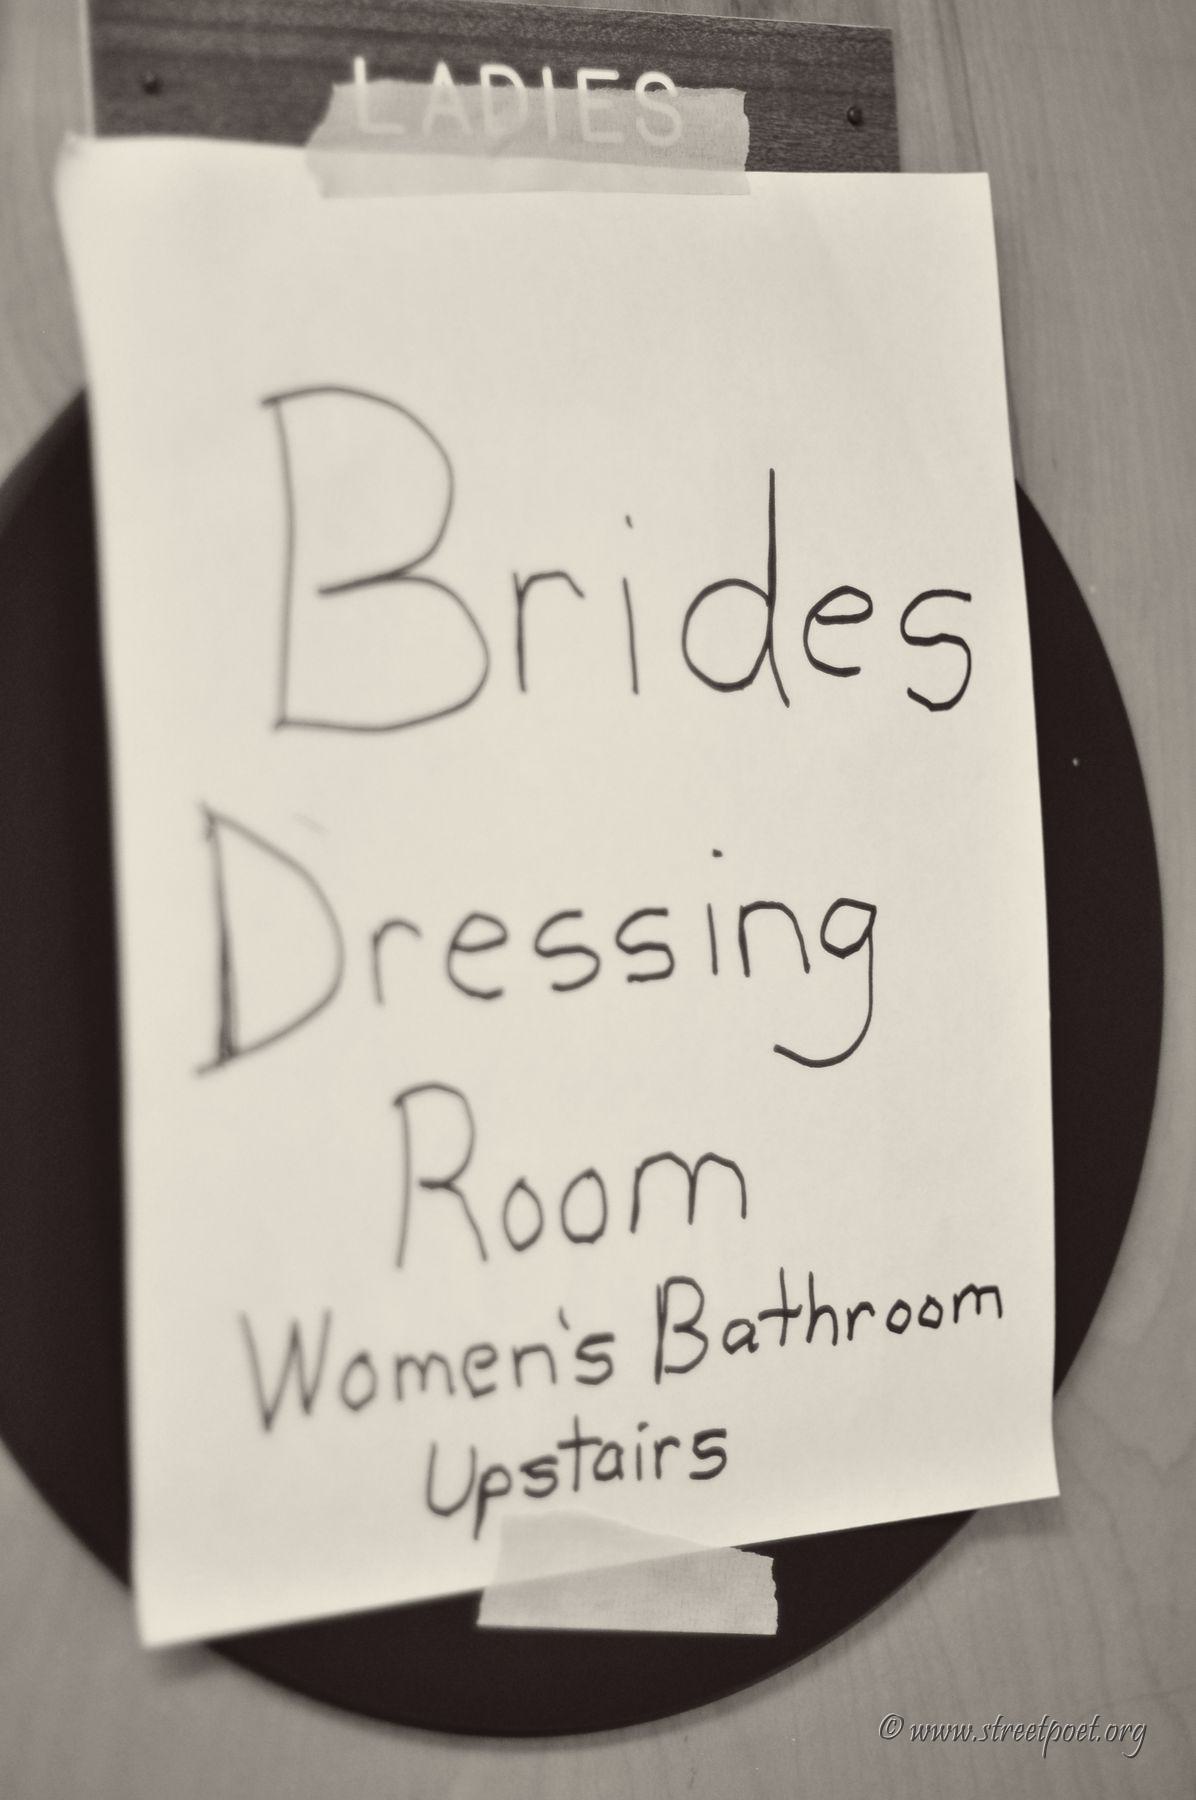 LADIES
Brides
Dressing
Room
Women's Bathroom
Upstairs
© www.streetpoet.org